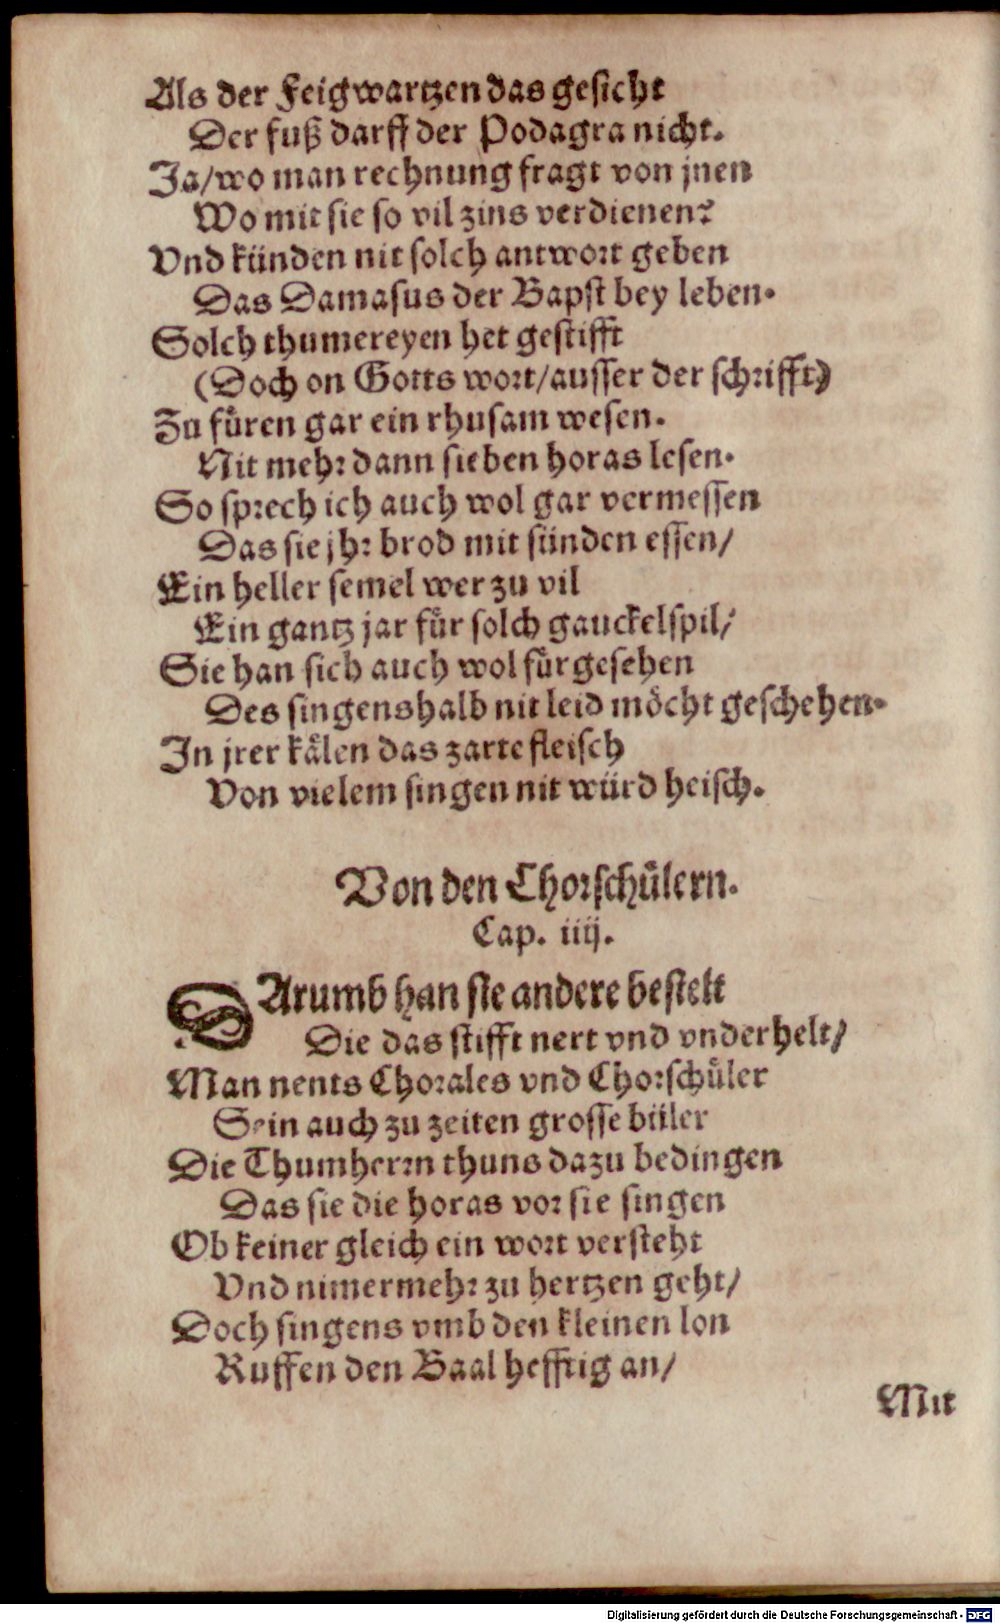 Als der Feigwartzen das gesicht
Der fuß darff der Podagra nicht.
Ja/wo man rechnung fragt von jnen
Wo mit sie so vil zins verdienen?
Vnd künden nit solch antwort geben
Das Damasus der Bapst bey leben.
Solch thumereyen het gestifft
(Doch on Gotts wort/ausser der schrifft)
Zu füren gar ein rhusam wesen.
Nit mehr dann sieben horas lesen.
So sprech ich auch wol gar vermessen
Das sie jhr brod mit sünden essen/
Ein heller semel wer zu vil
Ein gantz jar für solch gauckelspil/
Sie han sich auch wol fürgesehen
Des singenshalb nit leid möcht geschehen.
In jrer kälen das zarte fleisch
Von vielem singen nit würd heisch.
Von den Chorschülern.
Cap. iiij.
DArumb han sie andere bestelt
Die das stifft nert vnd vnderhelt/
Man nents Chorales vnd Chorschüler
Sein auch zu zeiten grosse büler
Die Thumherrn thuns dazu bedingen
Das sie die horas vor sie singen
Ob keiner gleich ein wort versteht
Vnd nimermehr zu hertzen geht/
Doch singens vmb den kleinen lon
Ruffen den Baal hefftig an/
Mit
Digitalisierung gefördert durch die Deutsche Forschungsgemeinschaft - DFG